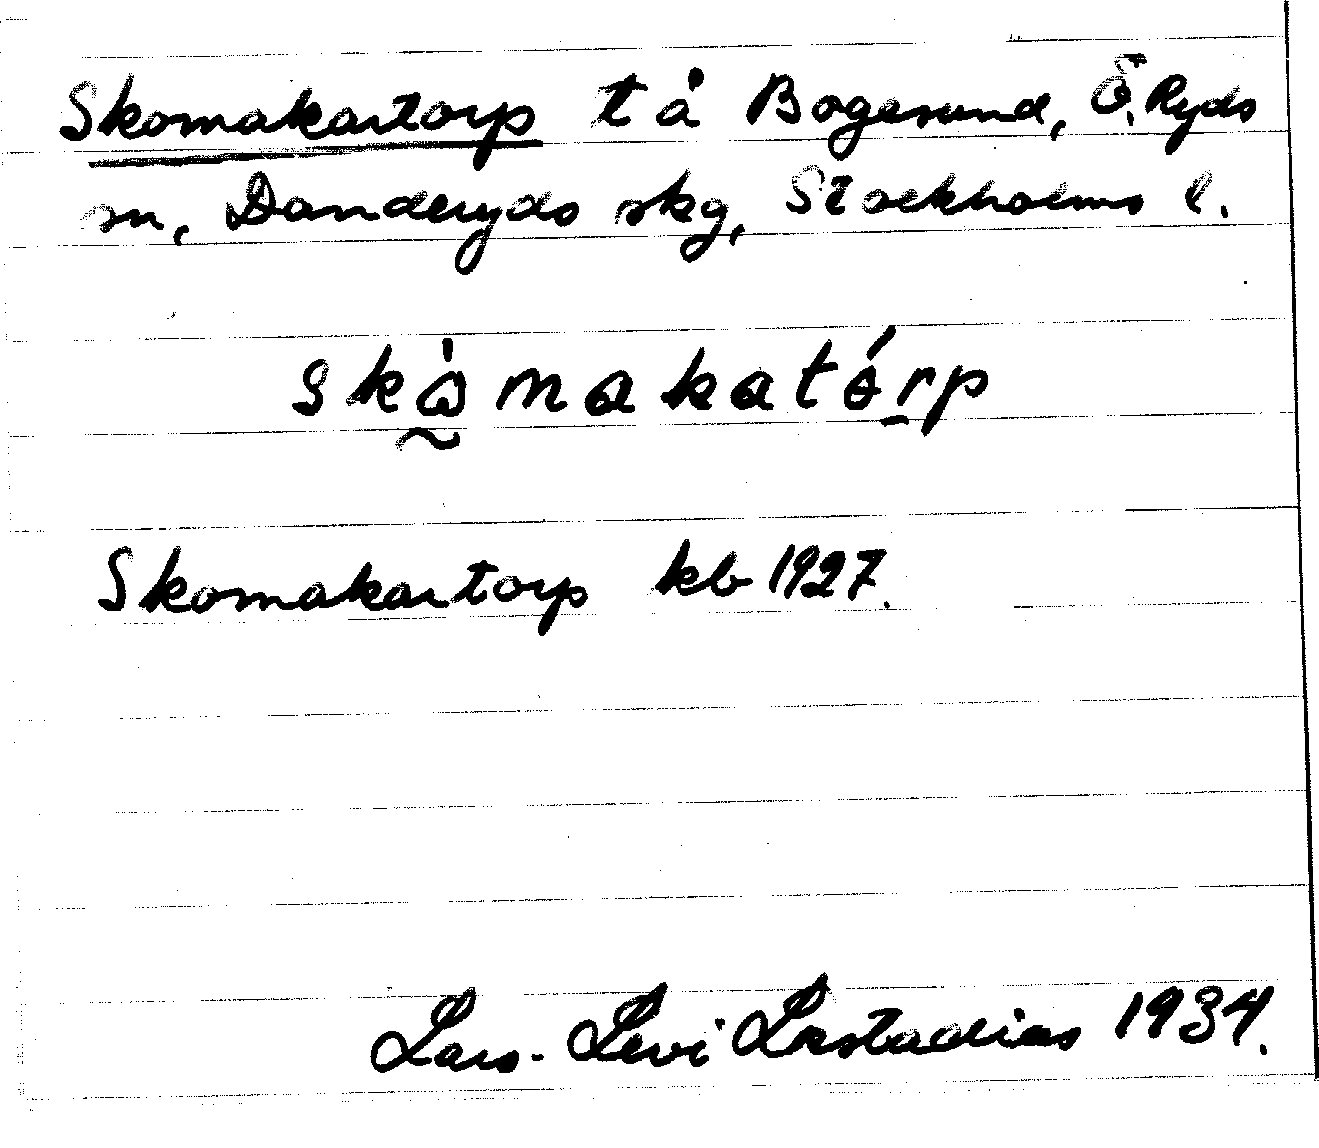 Skomakartorp t å Bogesund, Ö. Ryds
sn, Danderyds skg, Stockholms l.
skòmakatórp
Skomakartorp kb 1927.
Lars-Levi Læstadius 1934.